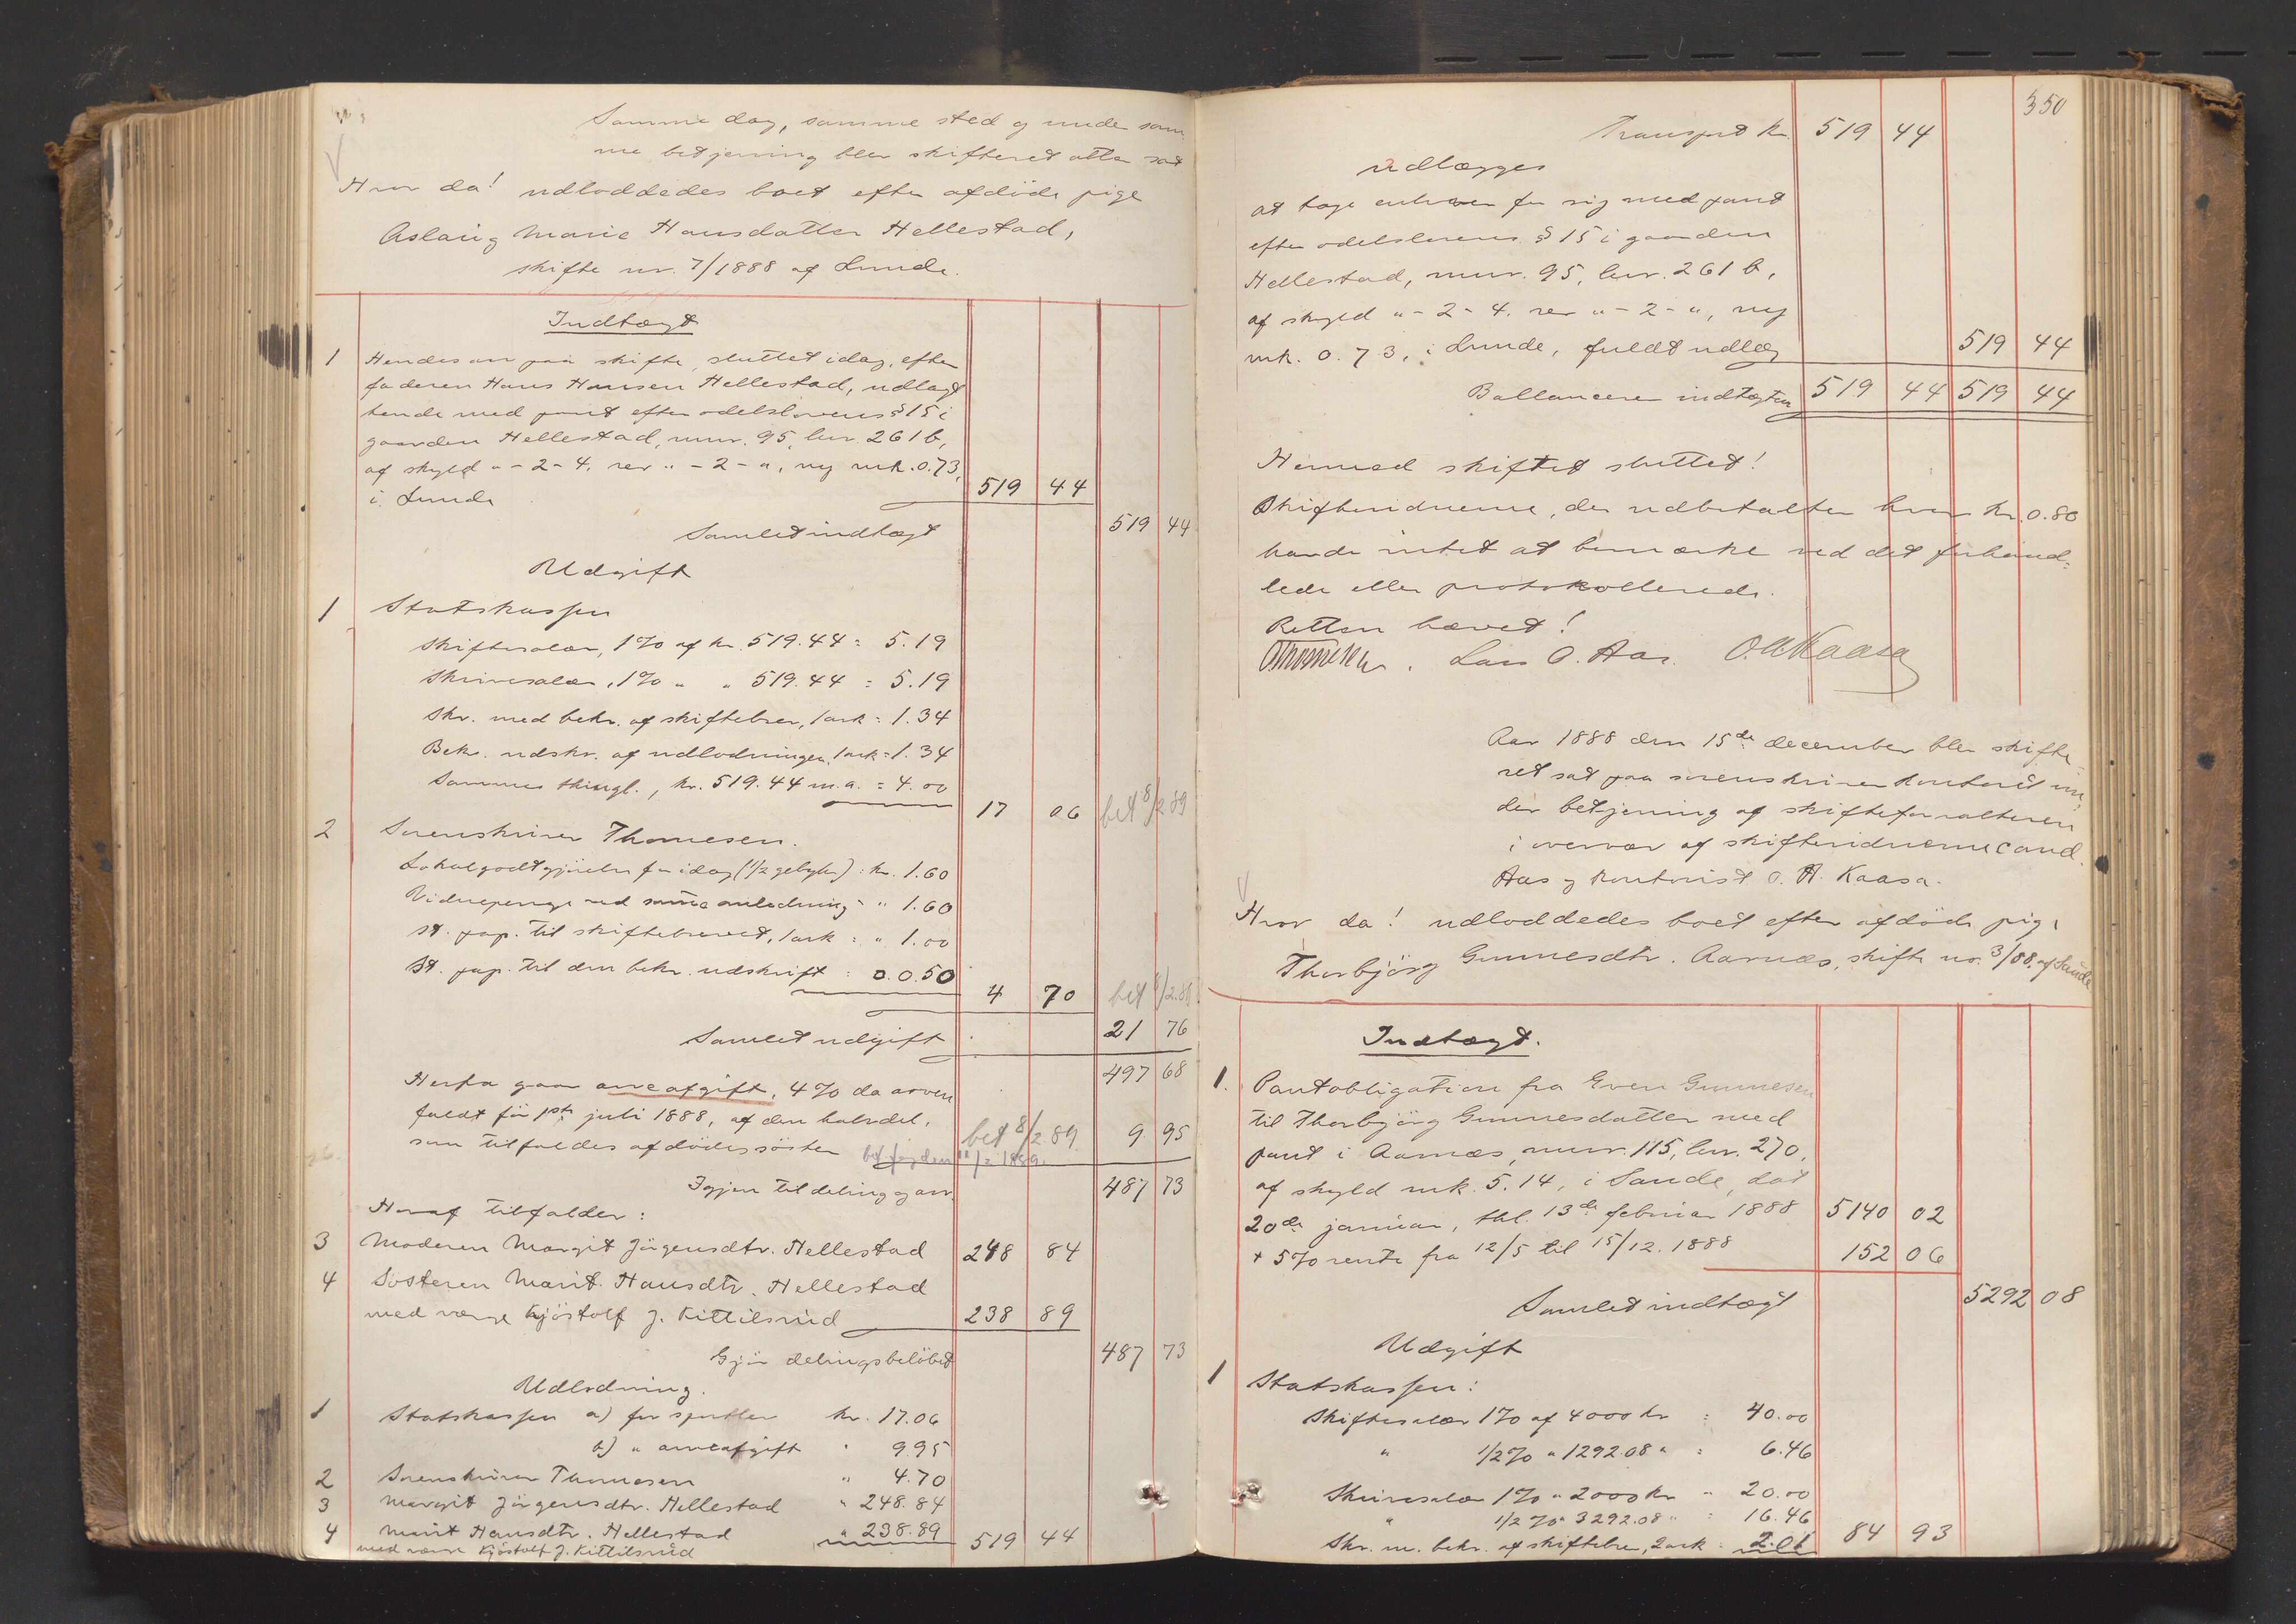 Samme dag, samme sted og under sam-
me betjening blev skifteret atter sat
Hvor da! udloddedes boet efter afdöde pige
Aslaug Marie Hansdatter Hellestad,
skifte nr. 7/1888 af Lunde.
Indtægt
1 Hendes arv paa skifte, sluttet idag, efter
faderen Hans Hansen Hellestad, udlagt
hende med pant efter odelslovens § 15 i
gaarden Hellestad, mnr. 95, lnr. 261 b,
af skyld " - 2 - 4, rev " - 2 - ", ny mk. 0.73,
i Lunde 519 44
Samlet indtægt 519 44
Udgift
1 Statskassen
Skiftesalær, 1% af kr. 519.44 = 5.19
Skrivesalær, 1% " " 519.44 = 5.19
Skr. med bekr. af skiftebrev, 1 ark = 1.34
Bekr. udskr. af udlodningen, 1 ark = 1.34
Sammes thingl., kr. 519.44 m.a. = 4.00
17 06 bet 8/2 89
2 Sorenskriver Thomesen.
Lokalgodtgjörelse for idag (1/2 gebyhr) : kr. 1.60
Vidnepenge ved samme anledning " 1.60
St. pap. til skiftebrevet, 1 ark : " 1.00
St. pap. til den bekr. udskrift : 0.0.50
4 70 bet 8/2.89
Samlet udgift 21 76
497 68
Herfra gaar arveafgift, 4% da arven
faldt för 1ste juli 1888, af den halvdel,
som tilfaldes afdödes söster bet 8/2 89 9 95
11/2 1889.
Igjen til deling og arv. 487 73
Heraf tilfalder:
3 Moderen Margit Jörgensdtr. Hellestad 248 84
4 Sösteren Marit Hansdtr. Hellestad
med værge Kjöstolf J. Kittilsrud 238 89
Gjör delingsbelöbet 487 73
Udlodning.
1 Statskassen a) for sportler kr. 17.06
b) " arveafgift " 9.95
2 Sorenskriver Thomesen " 4.70
3 Margit Jörgensdtr. Hellestad " 248.84
4 Marit Hansdtr. Hellestad " 238.89 519 44
med værge Kjöstolf J. Kittilsrud
350
Transport kr. 519 44
udlægges
at tage enhver for sig med pant
efter odelslovens § 15 i gaarden
Hellestad, mnr. 95, lnr. 261 b,
af skyld " - 2 - 4. rev " - 2 - ", ny
mk. 0.73, i Lunde, fuldt udlæg 519 44
Ballancerer indtægten 519 44 519 44
Hermed skiftet sluttet!
Skiftevidnerne, der udbetaltes hver kr. 0.80
havde intet at bemærke ved det forhand-
lede eller protokollerede.
Retten hævet!
Thomesen. Lars O. Aas. O. A. Kaasa
Aar 1888 den 15de december blev skifte-
ret sat paa sorenskriverkontoret un-
der betjening af skifteforvalteren
i overvær af skiftevidnerne cand.
Aas og kontorist O. A. Kaasa.
Hvor da! udloddedes boet efter afdöde pige
Thorbjörg Gunnesdtr. Aarnæs, skifte no. 3/88. af Sande
Indtægt.
1. Pantobligation fra Even Gunnesen
til Thorbjörg Gunnesdatter med
pant i Aarnæs, mnr. 115, lnr. 270,
af skyld mk. 5.14, i Sande, dat
20de januar, thl. 13de februar 1888 5140 02
+ 5% rente fra 12/5 til 15/12. 1888 152 06
Samlet indtægt 5292 08
Udgift
1 Statskassen:
Skiftesalær 1% af 4000 kr : 40.00
" 1/2% " 1292.08 " : 6.46
Skrivesalær 1% " 2000 kr " 20.00
" 1/2 % " 3292.08 " : 16.46
Skr. m. bekr. af skiftebrev, 2 ark : 2.01 84 93